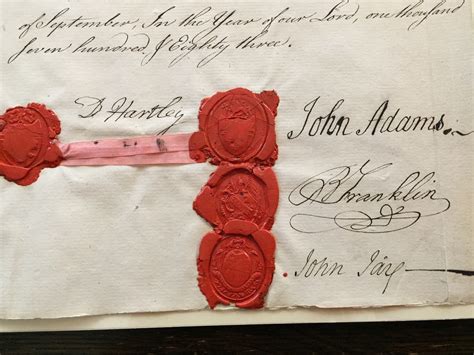 of September, In the Year of our Lord, one thousand
seven hundred & Eighty three.
D Hartley
John Adams.
B Franklin
John Jay